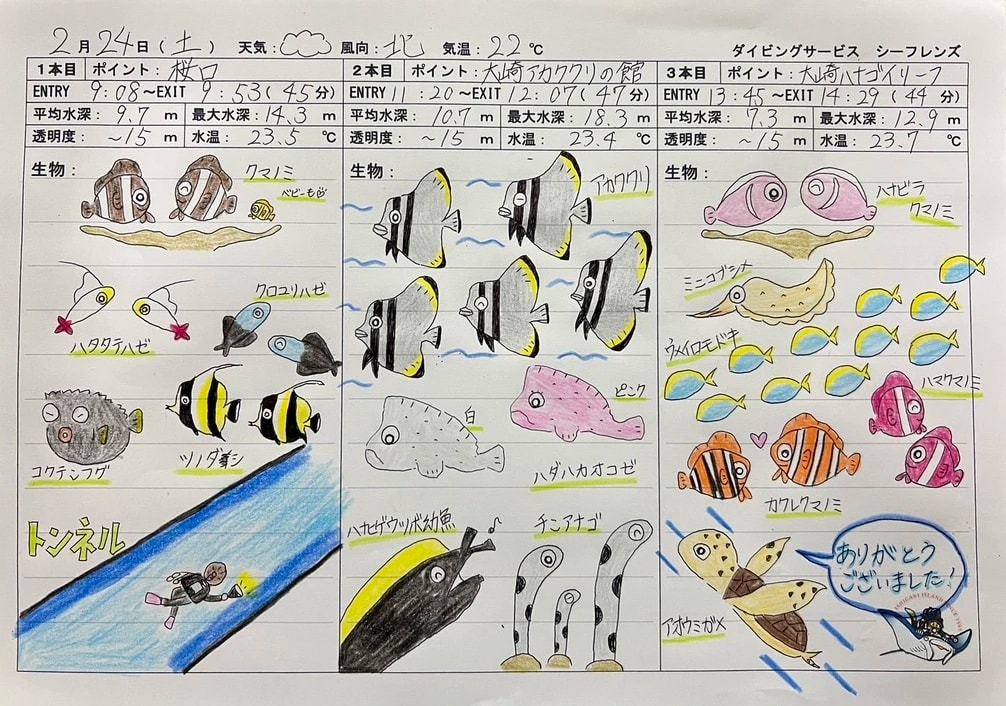 2月24日(土) 天気: 風向:北 気温:22℃
ダイビングサービス シーフレンズ
1本目 ポイント:桜口
ENTRY 9:08~EXIT 9:53(45分)
平均水深: 9.7 m 最大水深:14.3 m
透明度: ~15 m 水温: 23.5 ℃
生物:
クマノミ
ベビーも
クロユリハゼ
ハタタテハゼ
コクテンフグ
ツノダシ
トンネル
2本目 ポイント:大崎アカククリの館
ENTRY 11:20~EXIT 12:07(47分)
平均水深: 10.7 m 最大水深: 18.3 m
透明度: ~15 m 水温: 23.4 ℃
生物:
アカククリ
ピンク
白
ハダハカオコゼ
ハナヒゲウツボ幼魚
チンアナゴ
3本目 ポイント:大崎ハナゴイリーフ
ENTRY 13:45~EXIT 14:29(44分)
平均水深: 7.3 m 最大水深: 12.9 m
透明度: ~15 m 水温: 23.7 ℃
生物:
ハナビラ
クマノミ
ミニコブシメ
ウメイロモドキ
ハマクマノミ
カクレクマノミ
アオウミガメ
ありがとう
ございました!